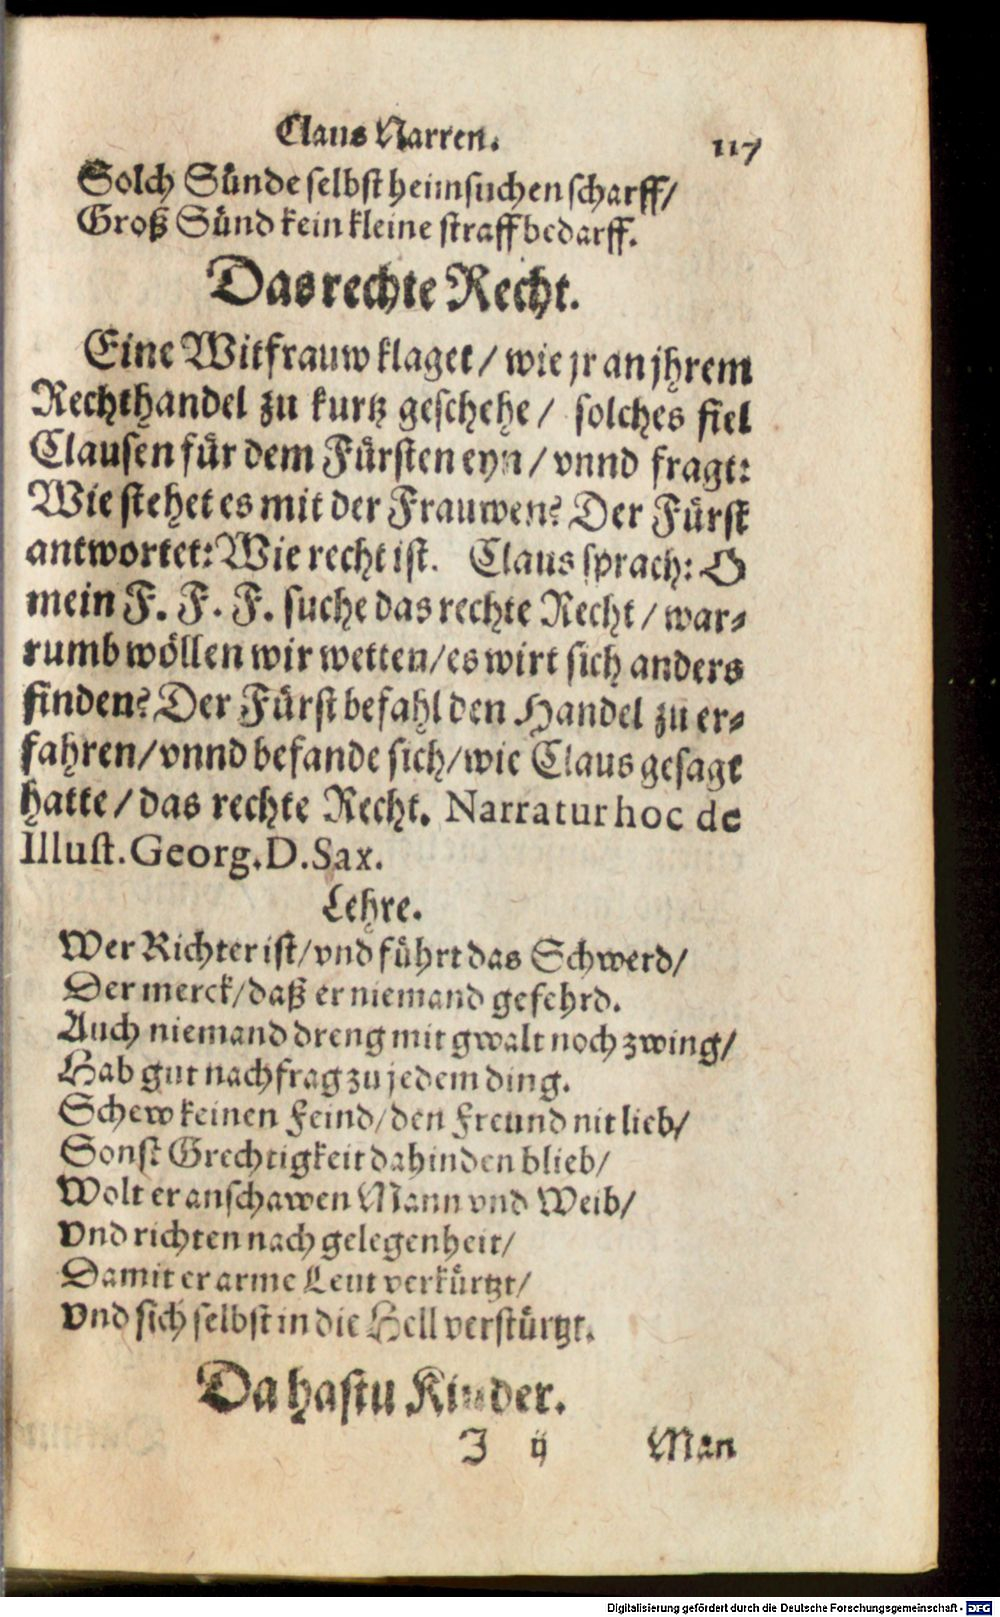 Claus Narren. 117
Solch Sünde selbst heimsuchen scharff/
Groß Sünd kein kleine straff bedarff.
Das rechte Recht.
Eine Witfrauw klaget/ wie jr an jhrem
Rechthandel zu kurtz geschehe/ solches fiel
Clausen für dem Fürsten eyn/ vnnd fragt:
Wie stehet es mit der Frauwen? Der Fürst
antwortet: Wie recht ist. Claus sprach: O
mein F. F. F. suche das rechte Recht/ war-
rumb wöllen wir wetten/ es wirt sich anders
finden? Der Fürst befahl den Handel zu er-
fahren/ vnnd befande sich/ wie Claus gesagt
hatte/ das rechte Recht. Narratur hoc de
Illust. Georg. D. Sax.
Lehre.
Wer Richter ist/ vnd führt das Schwerd/
Der merck/ daß er niemand gefehrd.
Auch niemand dreng mit gwalt noch zwing/
Hab gut nachfrag zu jedem ding.
Schew keinen Feind/ den Freund nit lieb/
Sonst Grechtigkeit dahinden blieb/
Wolt er anschawen Mann vnd Weib/
Vnd richten nach gelegenheit/
Damit er arme Leut verkürtzt/
Vnd sich selbst in die Hell verstürtzt.
Da hastu Kinder.
J ij Man
Digitalisierung gefördert durch die Deutsche Forschungsgemeinschaft - DFG